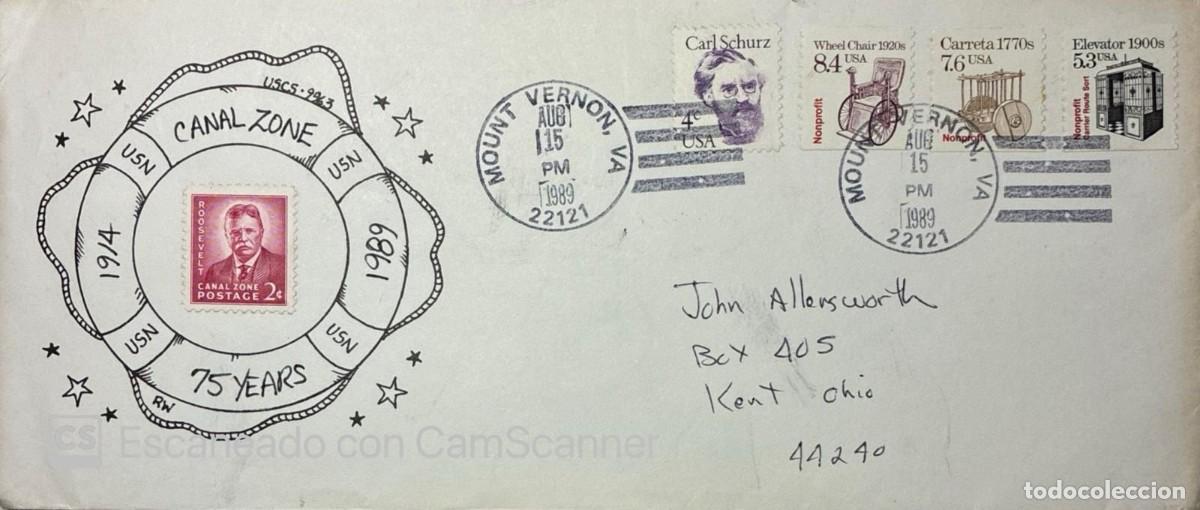 USCS-9963
CANAL ZONE
USN
USN
1914
1989
USN
USN
75 YEARS
RW
ROOSEVELT
CANAL ZONE
POSTAGE 2¢
Carl Schurz
4c
USA
Wheel Chair 1920s
8.4 USA
Nonprofit
Carreta 1770s
7.6 USA
Nonprofit
Elevator 1900s
5.3 USA
Nonprofit
Carrier Route Sort
MOUNT VERNON, VA
AUG
15
PM
1989
22121
MOUNT VERNON, VA
AUG
15
PM
1989
22121
John Allensworth
Box 405
Kent Ohio
44240
CS Escaneado con CamScanner
todocoleccion